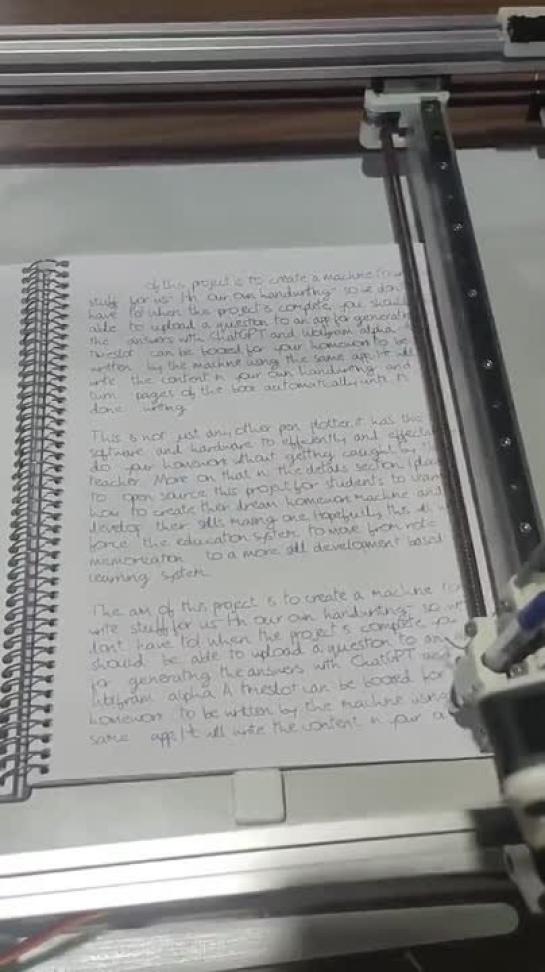 of this project is to create a machine
stuff for us ith our own handwriting- so we don
have to! when the project's complete, you should
able to upload a question to an app for generatin
the answers with ChatGPT and Wolfram alpha.
timeslot can be booed for your homewon to be
written by the machine using the same app. It will
write the content n your own handwriting and
turn pages of the boo automatically until
done writing
This is not just any other pen plotter, it has the
software and hardware to efficiently and effecti
do your homewon ithout getting caught by
teacher. More on that in the details section. I plan
to open source this project for students to learn
how to create their dream homewon machine and
develop their sills maing one. Hopefully this ill
force the education system to move from rote
memorization to a more sill development based
learning system
The aim of this project is to create a machine to
write stuff for us ith our own handwriting- so we
don't have to! when the project's complete, you
should be able to upload a question to an
for generating the answers with ChatGPT and
Wolfram alpha. A timeslot can be booed for
homewon to be written by the machine using
same app. It will write the content n your